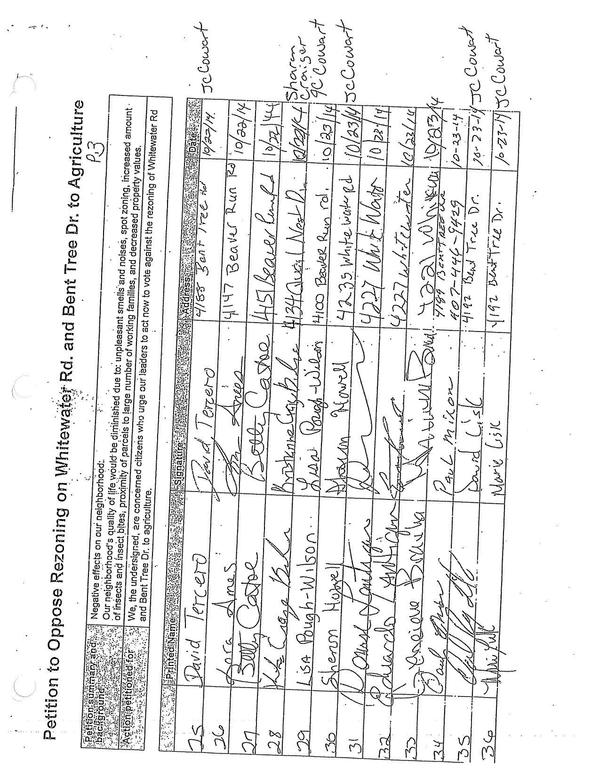 Petition to Oppose Rezoning on Whitewater Rd. and Bent Tree Dr. to Agriculture
P.3
Petition summary and background
Negative effects on our neighborhood:
Our neighborhood's quality of life would be diminished due to: unpleasant smells and noises, spot zoning, increased amount of insects and insect bites, proximity of parcels to large number of working families, and decreased property values.
Action petitioned for
We, the undersigned, are concerned citizens who urge our leaders to act now to vote against the rezoning of Whitewater Rd and Bent Tree Dr. to agriculture.
Printed Name Signature Address Date
25 David Tercero David Tercero 4188 Bent Tree Rd 10/22/14 JC Cowart
26 Lora Ames Ames 4147 Beaver Run Rd 10/22/14
27 Betty Cathe Betty Cathe 4151 Beaver Run Rd 10/22/14
28 4134 Quail Nest 10/22/14 Sharon Craiser
29 Lisa Pough-Wilson Lisa Pough-Wilson 4100 Beaver Run rd. 10/23/14 JC Cowart
30 Sharon Howell Sharon Howell 4235 Whitewater Rd 10/23/14 JC Cowart
31 4227 White Water 10 22/14
32 Eduardo 4227 Whitewater 10/23/14
33 4221 10/23/14
34 Paul Paul 4189 Bent Tree 10-23-14
407-446-9429
35 David Lisk 4192 Bent Tree Dr. 10-23-14 JC Cowart
36 Marie Lisk 4192 Bent Tree Dr. 10-23-14 JC Cowart